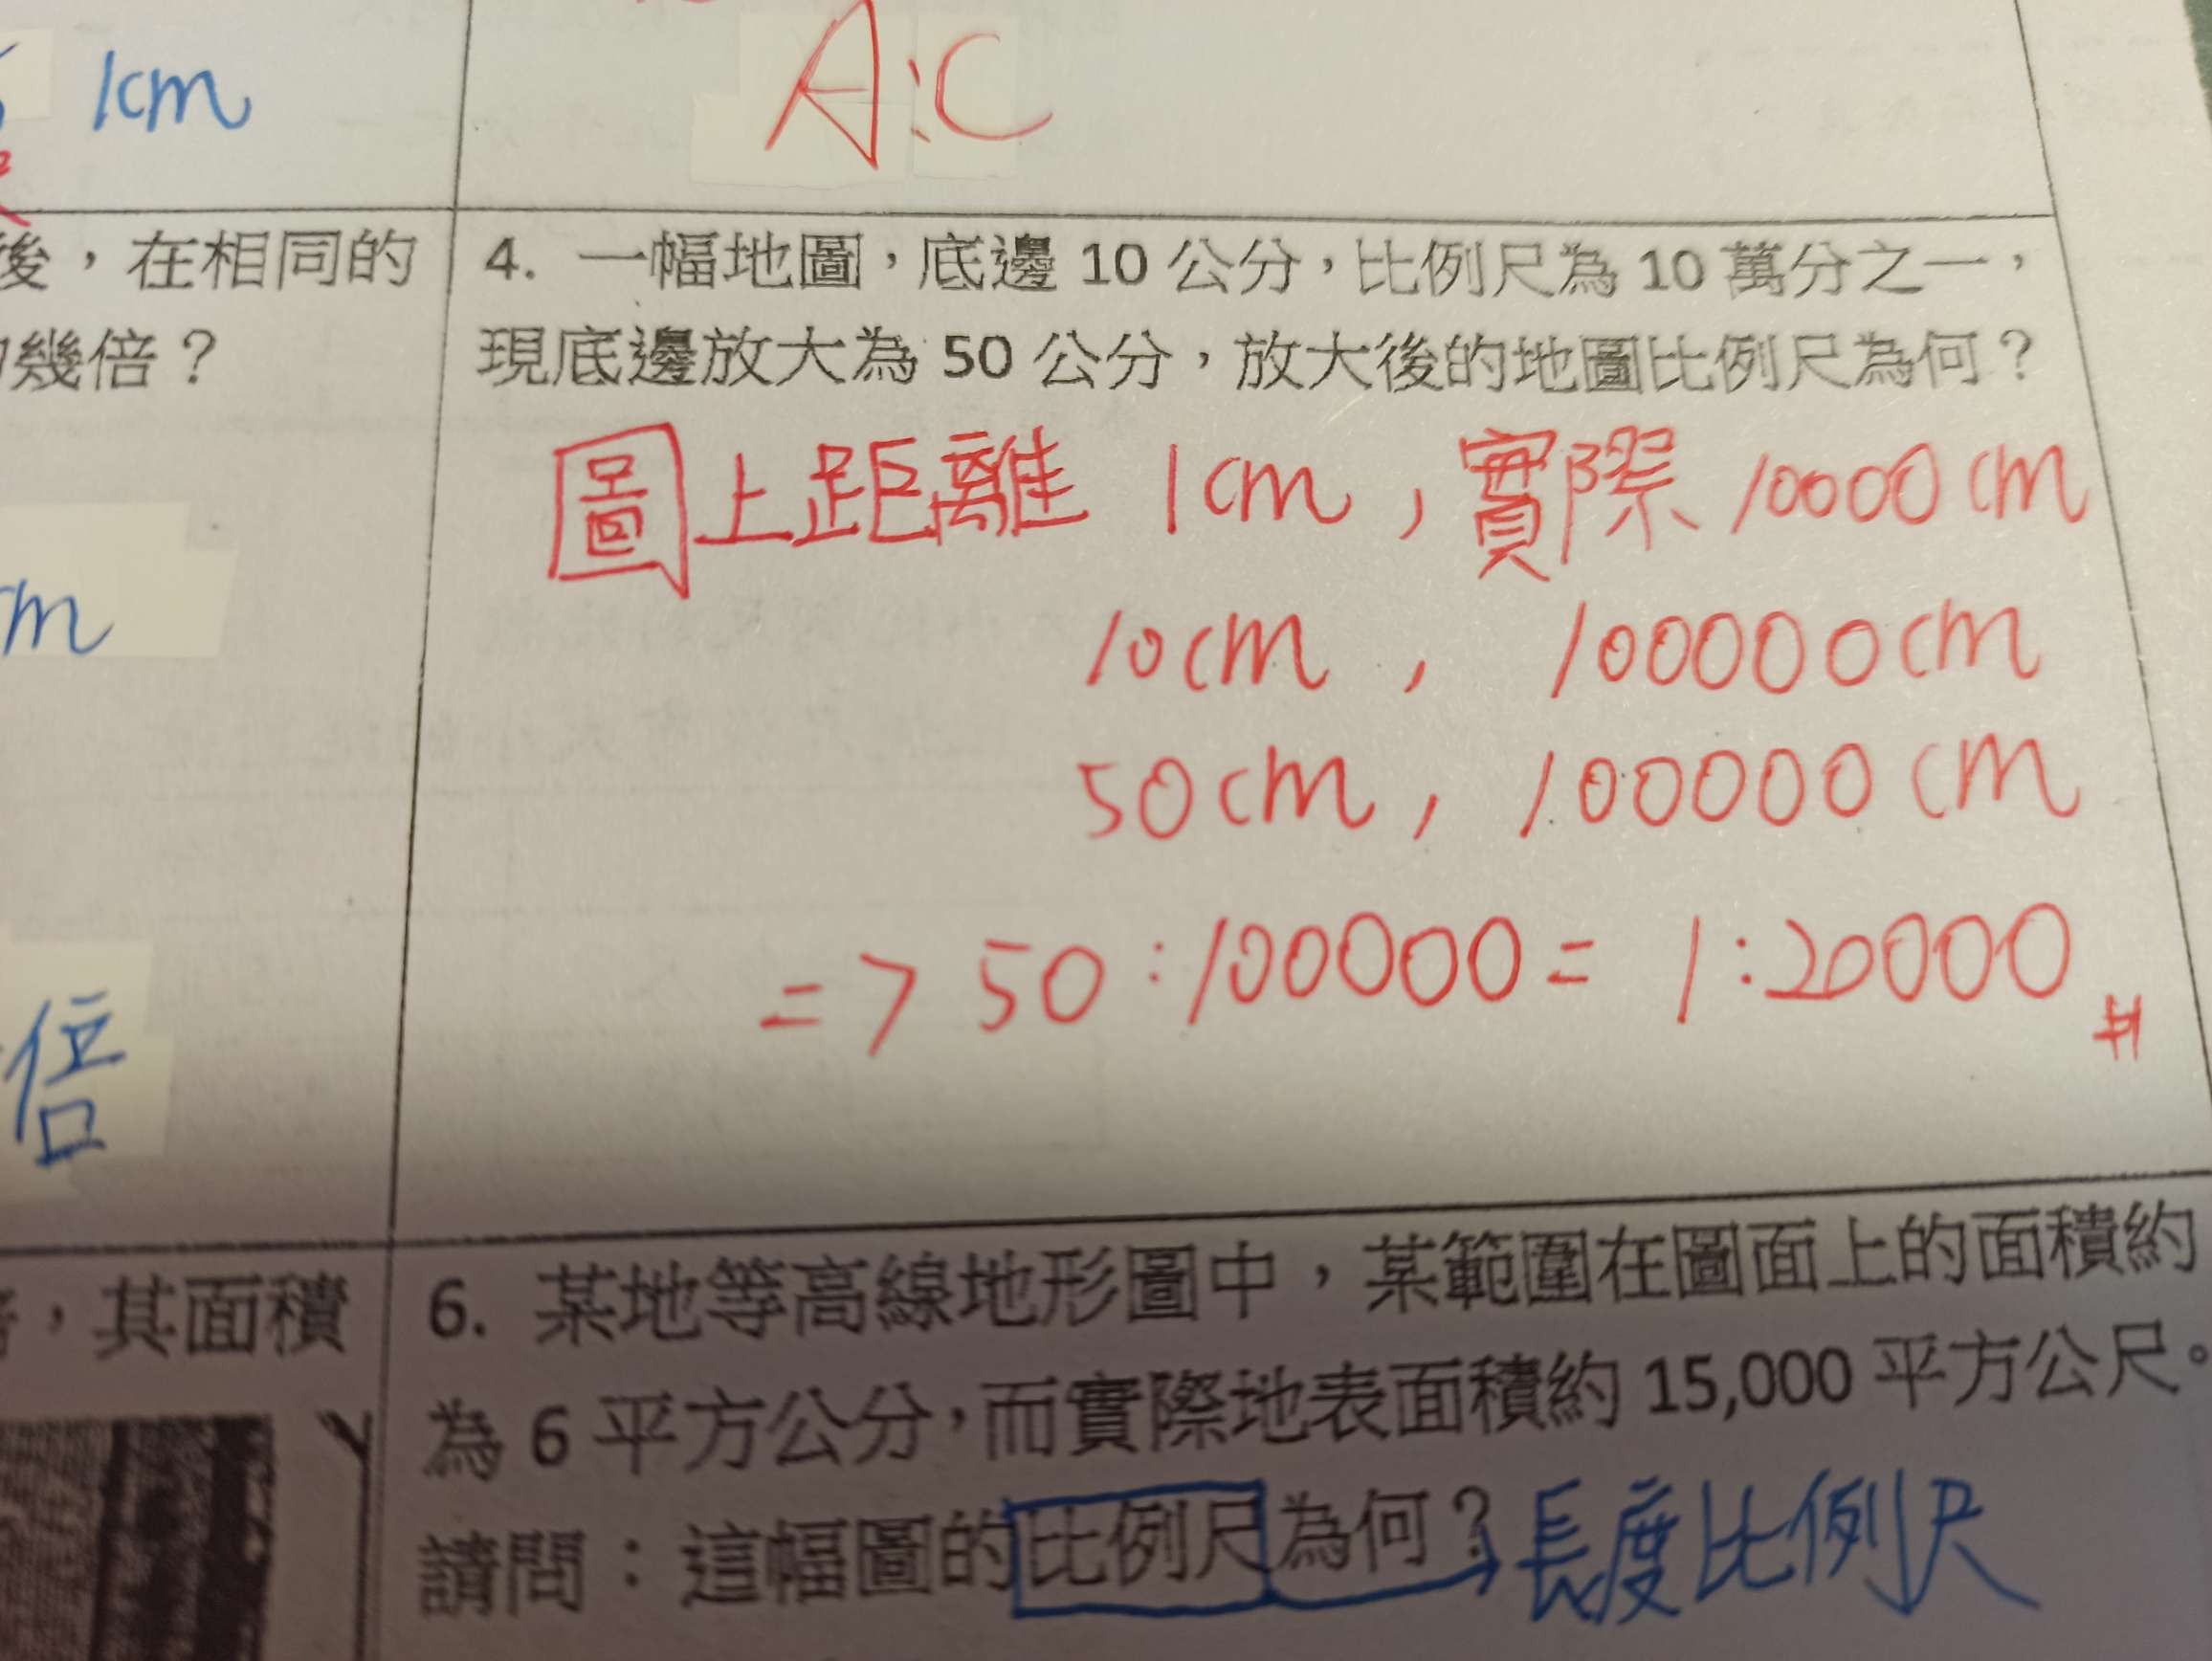 1cm
A:C
後，在相同的
幾倍？
4. 一幅地圖，底邊 10 公分，比例尺為 10 萬分之一，
現底邊放大為 50 公分，放大後的地圖比例尺為何？
圖上距離 1cm，實際 10000cm
10cm， 100000cm
50cm， 100000cm
=> 50:100000= 1:20000 #
cm
倍
，其面積
6. 某地等高線地形圖中，某範圍在圖面上的面積約
為 6 平方公分，而實際地表面積約 15,000 平方公尺。
請問：這幅圖的比例尺為何？→長度比例尺